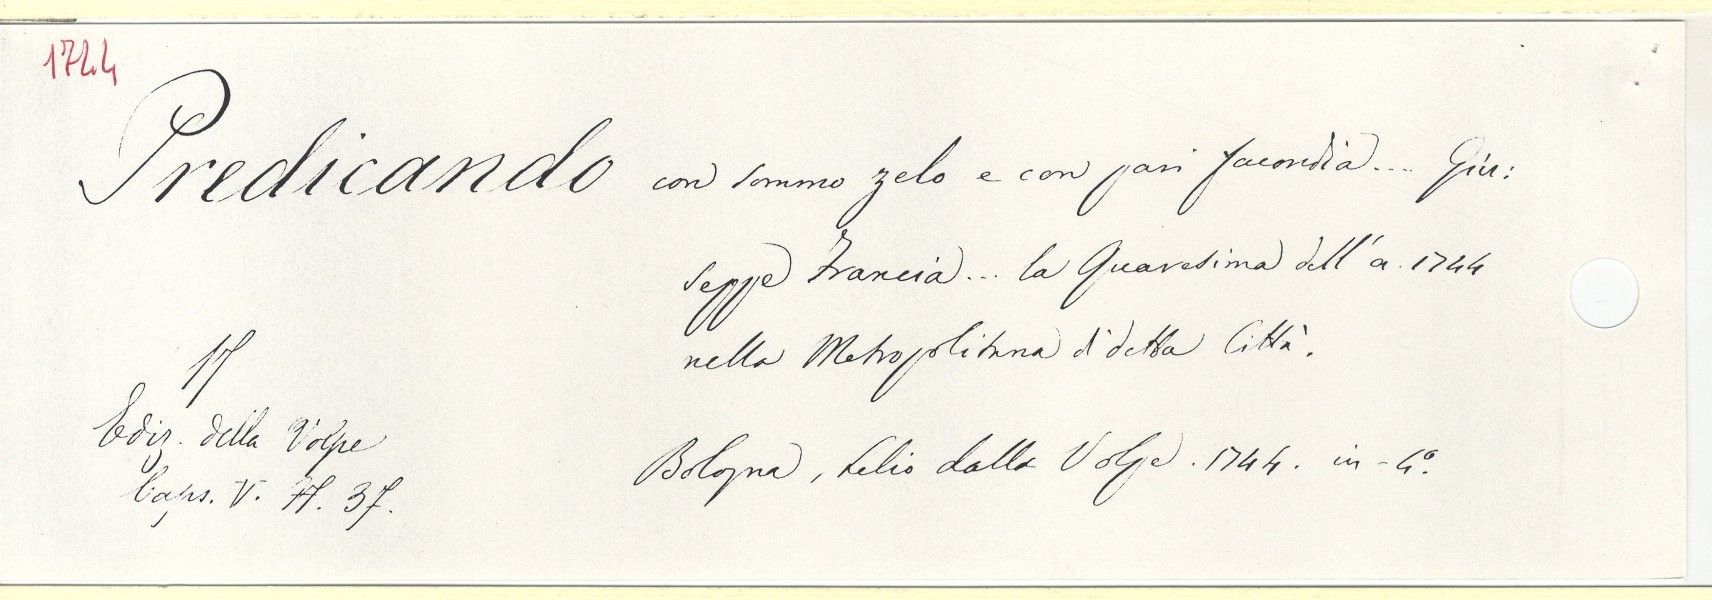 1744
Predicando con sommo zelo e con pari facondia.... Giu:
seppe Francia... la Quaresima dell' a. 1744
nella Metropolitana di detta Città.
17
Ediz. della Volpe
Bologna, Lelio dalla Volpe. 1744. in-4º.
Caps. V. 37.